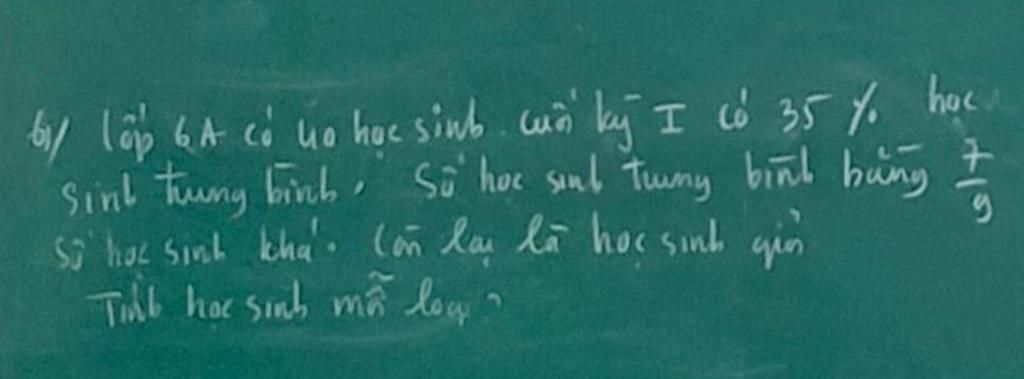 6) lớp 6A có 40 học sinh. cuối kỳ I có 35 % học
sinh trung bình. Số học sinh trung bình bằng 7/9
số học sinh khá. Còn lại là học sinh giỏi
Tính học sinh mỗi loại?